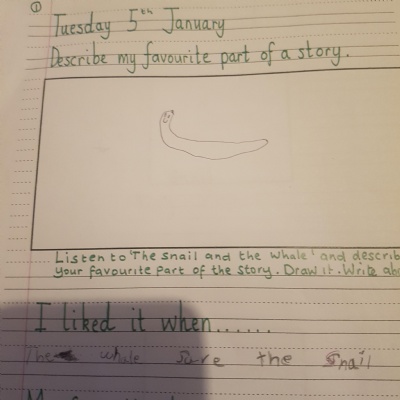 ①
Tuesday 5th January
Describe my favourite part of a story.
Listen to 'The snail and the whale' and describ
your favourite part of the story. Draw it. Write abo
I liked it when......
The whale save the Snail